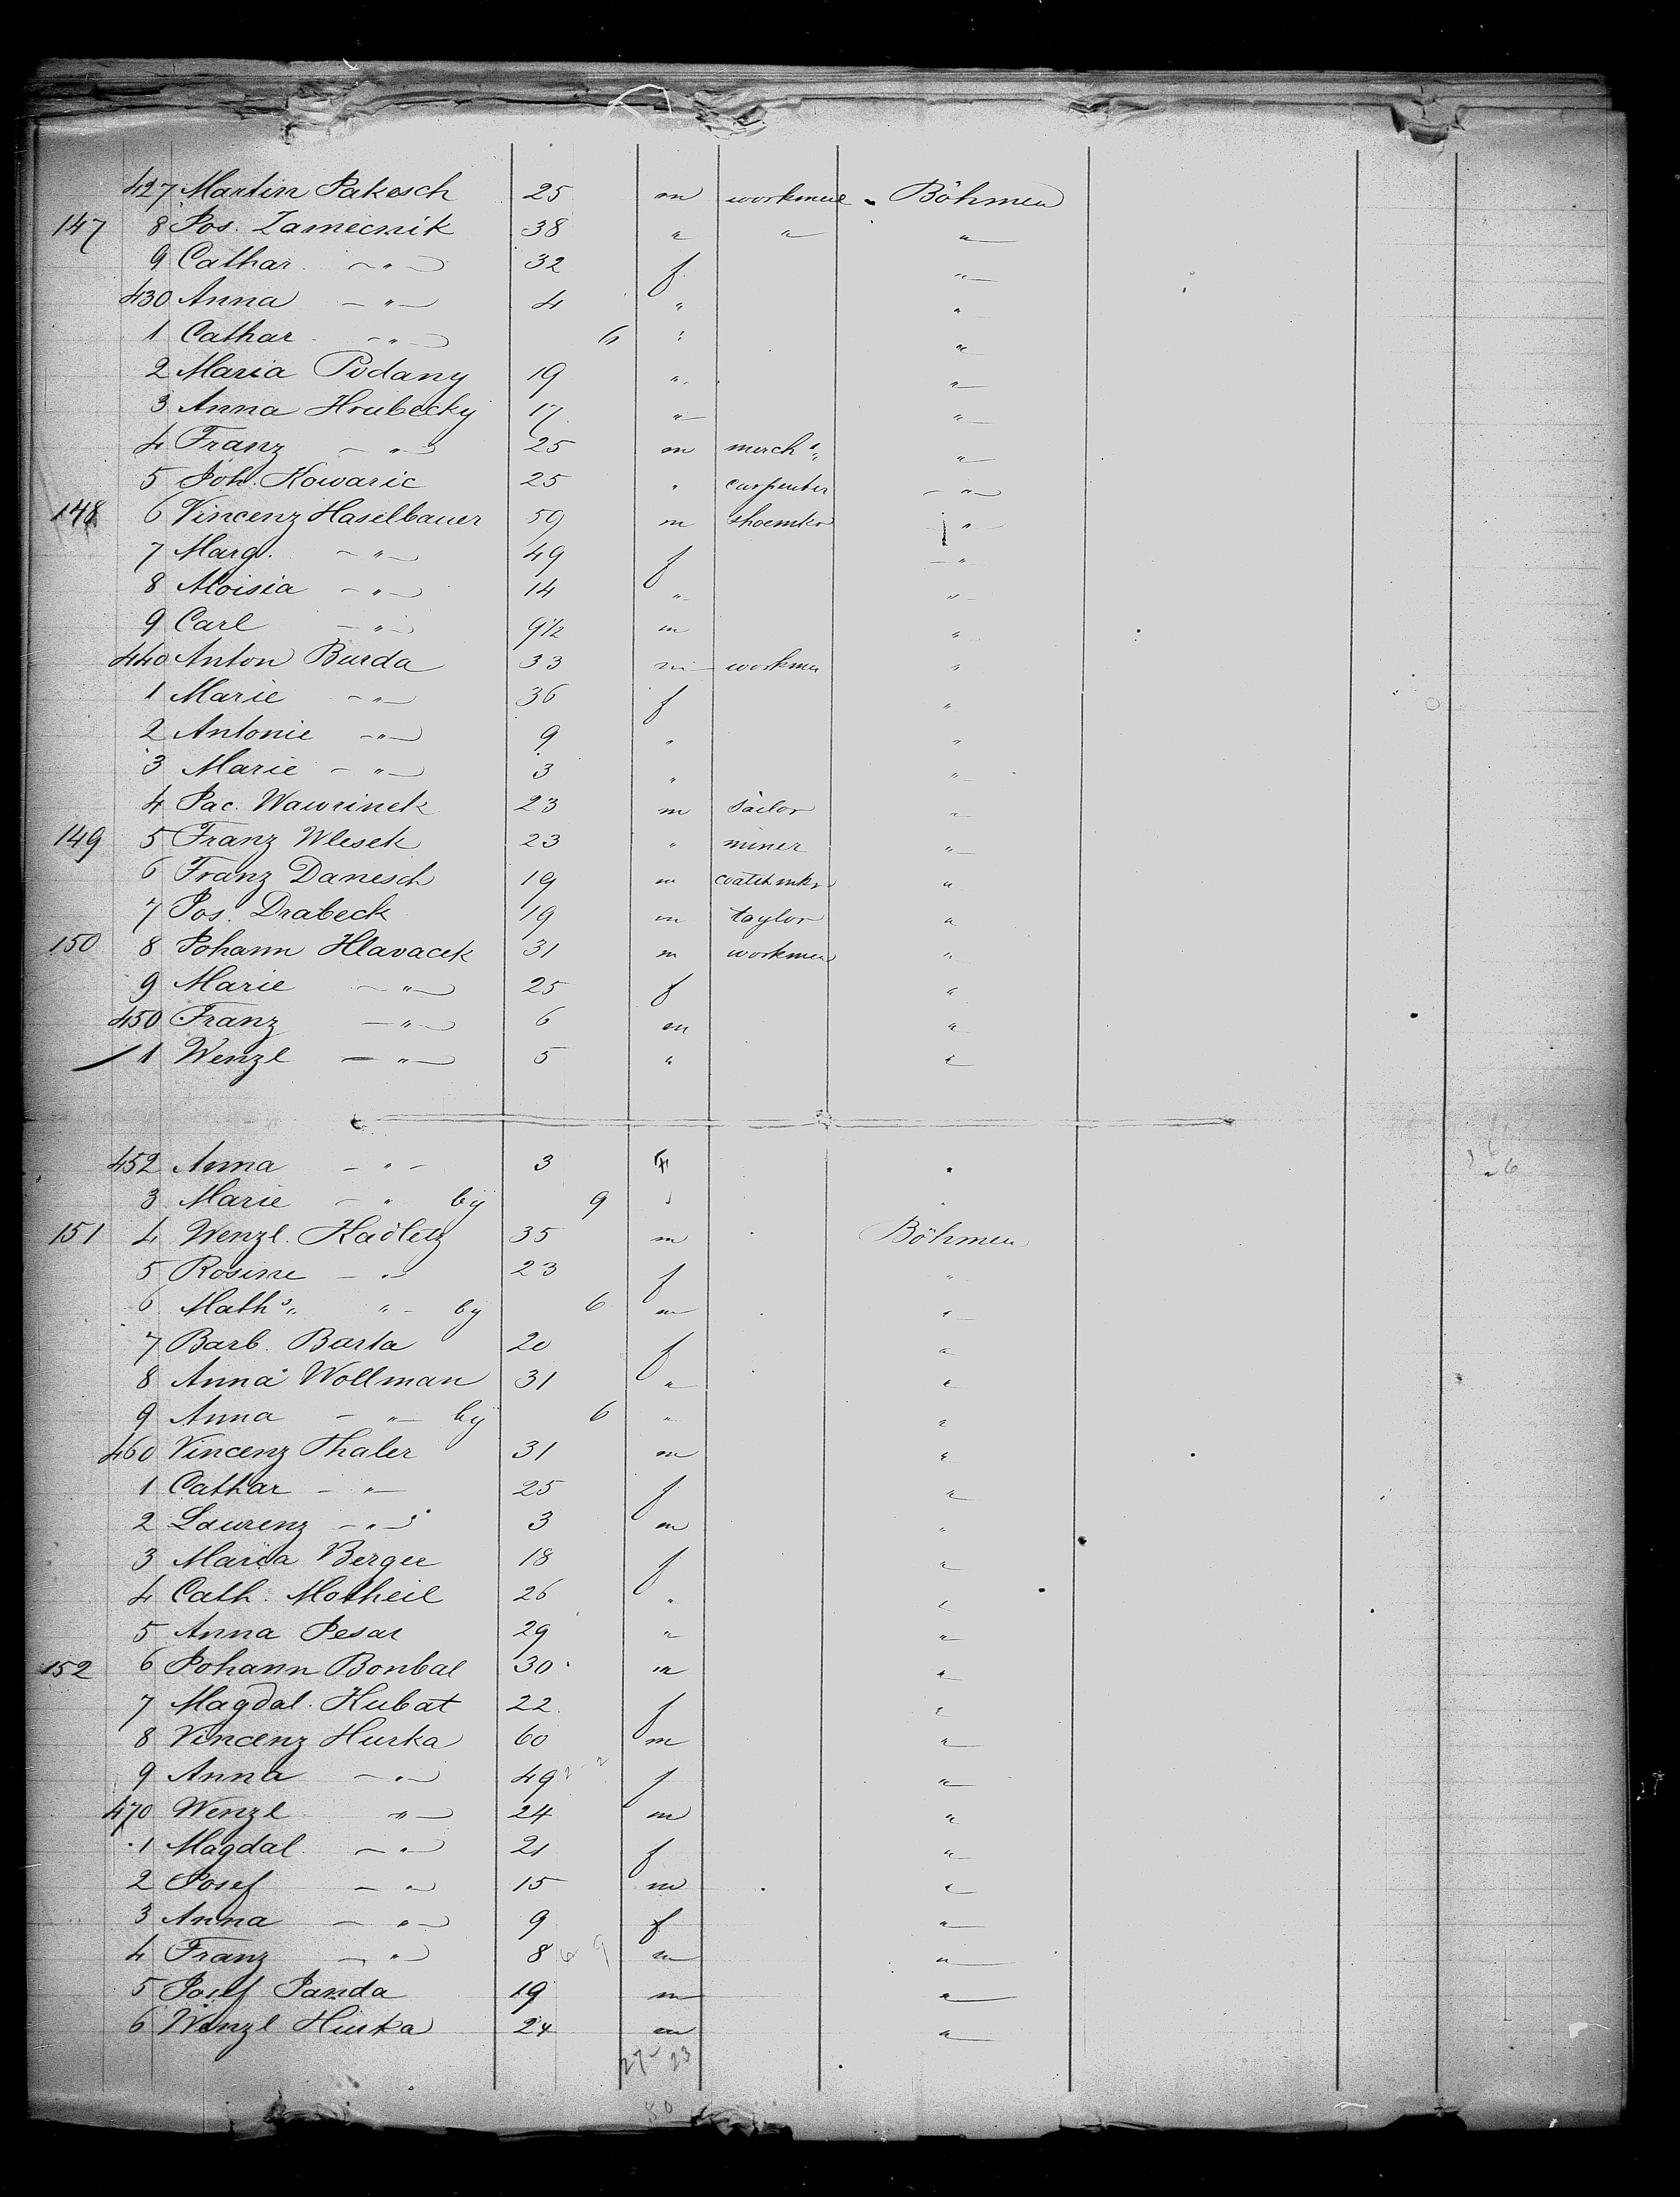 427 Martin Pakesch 25 m workmen Böhmen
147 8 Jos. Zamecnik 38 " " "
9 Cathar. — " — 32 f "
430 Anna — " — 4 " "
1 Cathar. — " — 6 " "
2 Maria Podany 19 " "
3 Anna Hrubecky 17 " "
4 Franz — " — 25 m merch "
5 Joh. Kowaric 25 " carpenter — " —
148 6 Vincenz Haselbauer 59 m shoemkr "
7 Marg. — " — 49 f — "
8 Aloisia — " — 14 " "
9 Carl — " — 9 1/2 m "
440 Anton Burda 33 m workmen "
1 Marie — " — 36 f "
2 Antonie — " — 9 " "
3 Marie — " — 3 " "
4 Jac. Wawrinek 23 m Sailor "
149 5 Franz Wlesek 23 " miner "
6 Franz Danesch 19 m "
7 Jos. Drabeck 19 m taylor "
150 8 Johann Hlavacek 31 m workmen "
9 Marie — " — 25 f "
450 Franz — " — 6 m "
1 Wenzl — " — 5 " "
452 Anna — " — 3 f "
3 Marie — " by 9 " "
151 4 Wenzl. Kadletz 35 m Böhmen
5 Rosine — " 23 f "
6 Maths " — by 6 m "
7 Barb. Barta 20 f "
8 Anna Wollman 31 " "
9 Anna — " — by 6 " "
460 Vincenz Thaler 31 m "
1 Cathar — " — 25 f "
2 Laurenz — " — 3 m "
3 Maria Berger 18 f "
4 Cath. Motheil 26 " "
5 Anna Pesar 29 " "
152 6 Johann Bonbal 30 m "
7 Magdal. Hubat 22 f "
8 Vincenz Hurka 60 m "
9 Anna — " — 49 f "
470 Wenzl " — 24 m "
1 Magdal. — " — 21 f "
2 Josef — " — 15 m "
3 Anna — " — 9 f "
4 Franz — " — 8 m "
5 Josef Janda 19 m "
6 Wenzl Hurka 24 m "
27 23
50